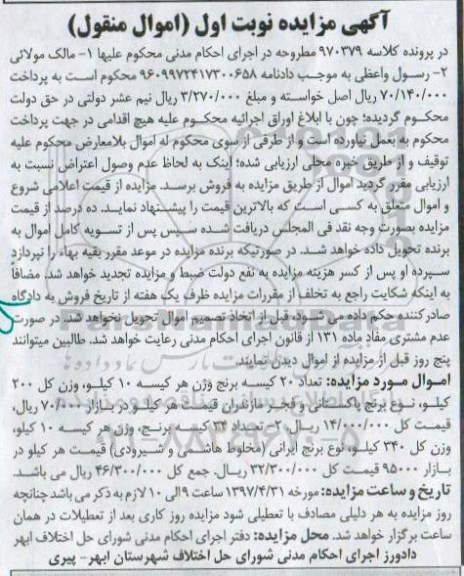 آگهی مزایده نوبت اول (اموال منقول)
در پرونده کلاسه ۹۷۰۳۷۹ مطروحه در اجرای احکام مدنی محکوم علیها ۱- مالک مولائی
۲- رسول واعظی به موجب دادنامه ۹۶۰۹۹۷۲۴۱۷۳۰۰۶۵۸ محکوم است به پرداخت
۷۰/۱۴۰/۰۰۰ ریال اصل خواسته و مبلغ ۳/۲۷۰/۰۰۰ ریال نیم عشر دولتی در حق دولت
محکوم گردیده؛ چون با ابلاغ اوراق اجرائیه محکوم علیه هیچ اقدامی در جهت پرداخت
محکوم به بعمل نیاورده است و از طرفی از سوی محکوم له اموال بلامعارض محکوم علیه
توقیف و از طریق خبره محلی ارزیابی شده؛ اینک به لحاظ عدم وصول اعتراض نسبت به
ارزیابی مقرر گردید اموال از طریق مزایده به فروش برسد. مزایده از قیمت اعلامی شروع
و اموال متعلق به کسی است که بالاترین قیمت را پیشنهاد نماید. ده درصد از قیمت
مزایده بصورت وجه نقد فی المجلس دریافت شده سپس پس از تسویه کامل اموال به
برنده تحویل داده خواهد شد. در صورتیکه برنده مزایده در موعد مقرر بقیه بهاء را نپردازد
سپرده او پس از کسر هزینه مزایده به نفع دولت ضبط و مزایده تجدید خواهد شد. مضافاً
به اینکه شکایت راجع به تخلف از مقررات مزایده ظرف یک هفته از تاریخ فروش به دادگاه
صادرکننده حکم داده می شود، قبل از اتخاذ تصمیم اموال تحویل نخواهد شد. در صورت
عدم مشتری مفاد ماده ۱۳۱ از قانون اجرای احکام مدنی رعایت خواهد شد. طالبین میتوانند
پنج روز قبل از مزایده از اموال دیدن نمایند.
اموال مورد مزایده: تعداد ۲۰ کیسه برنج وزن هر کیسه ۱۰ کیلو، وزن کل ۲۰۰
کیلو، نوع برنج پاکستانی و فجر مازندران قیمت هر کیلو در بازار ۷۰/۰۰۰ ریال،
قیمت کل ۱۴/۰۰۰/۰۰۰ ریال، ۲- تعداد ۳۴ کیسه برنج، وزن هر کیسه ۱۰ کیلو،
وزن کل ۳۴۰ کیلو، نوع برنج ایرانی (مخلوط هاشمی و شیرودی) قیمت هر کیلو در
بازار ۹۵۰۰۰ قیمت کل ۳۲/۳۰۰/۰۰۰ ریال، جمع کل ۴۶/۳۰۰/۰۰۰ ریال می باشد.
تاریخ و ساعت مزایده: مورخه ۱۳۹۷/۴/۳۱ ساعت ۹ الی ۱۰ لازم به ذکر می باشد چنانچه
روز مزایده به هر دلیلی مصادف با تعطیلی شود مزایده روز کاری بعد از تعطیلات در همان
ساعت برگزار خواهد شد. محل مزایده: دفتر اجرای احکام مدنی شورای حل اختلاف ابهر
دادورز اجرای احکام مدنی شورای حل اختلاف شهرستان ابهر- پیری